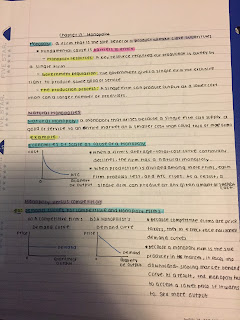 Chapter 15: Monopoly
Monopoly: a firm that is the sole seller of a product without close substitutes
• Fundamental cause is barriers to entry
Monopoly resources: A key resource required for production is owned by
a single firm
Government regulation: The government gives a single firm the exclusive
right to produce some good or service
The production process: A single firm can produce output at a lower cost
than can a larger number of producers
Natural Monopolies
Natural monopoly: a monopoly that arises because a single firm can supply a
good or service to an entire market at a smaller cost than could two or more
firms
Economies of scale as cause of a monopoly
Cost
• When a firm's average-total-cost curve continually
declines, the firm has a natural monopoly
• When production is divided among more firms, each
firm produces less, and ATC rises. As a result, a
single firm can produce any given amount at
ATC
Quantity
of output
Monopoly versus competition
Demand curves for competitive and monopoly firms
a) a competitive firm's
demand curve
b) a monopolist's
demand curve
Price
demand
Quantity
of output
Price
demand
Quantity
of output
• Because competitive firms are price
takers, they face horizontal
demand curves
• Because a monopoly firm is the sole
producer in its market, it faces the
downward-sloping market demand
curve. As a result, the monopoly has
to accept a lower price if it wants
to sell more output